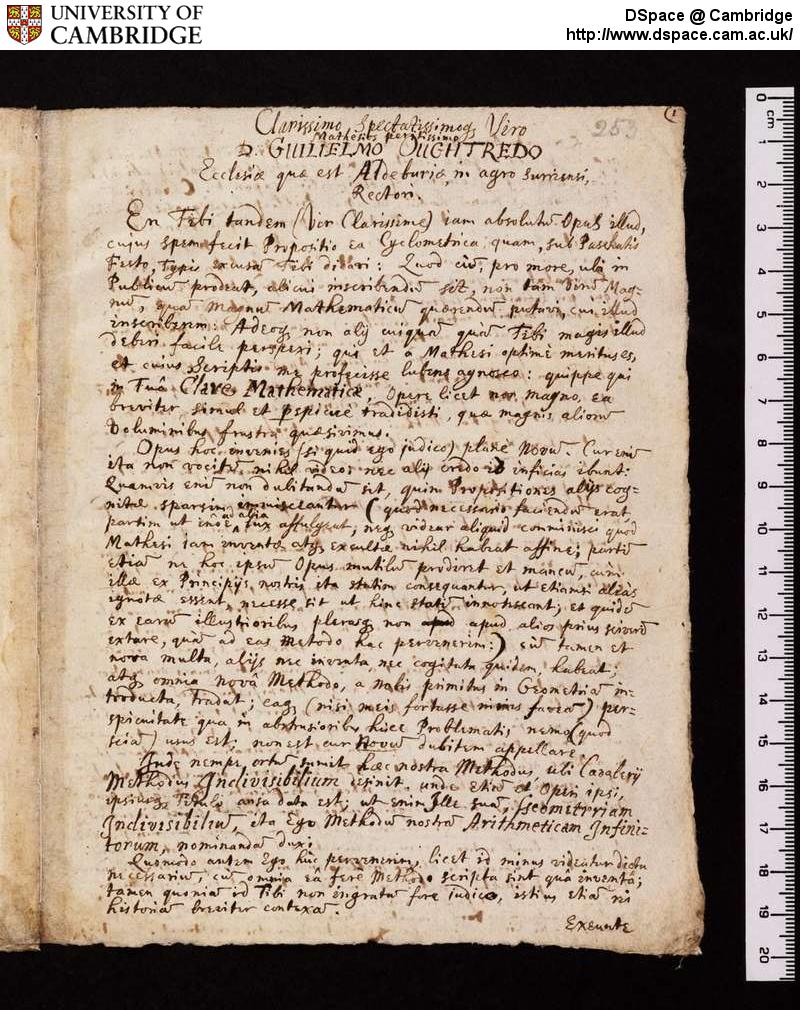 UNIVERSITY OF
CAMBRIDGE
DSpace @ Cambridge
http://www.dspace.cam.ac.uk/
1
253
Clarissimo Spectatissimoq, Viro
Matheseos peritissimo
D. GUILIELMO OUGHTREDO
Ecclesiæ quæ est Aldeburiæ, in agro Surriensi,
Rectori.
En Tibi tandem (Vir Clarissime) iam absolutū Opus illud,
cujus spem fecit Propositio ea Cyclometrica quam, sub Paschatis
Festo, Typis excusā Tibi dicavi: Quod cū, pro more, ubi in
Publicū prodeat, alicui inscribendū sit, non tam Virū Mag-
nū, quā magnū Mathematicū quærendū putavi, cui illud
inscriberem: Adeoq, non alij cuiquā quā Tibi magis illud
deberi facile perspexi; qui et a Mathesi optimè meritus es,
et cujus Scriptis me profecisse lubens agnosco: quippe qui
in Tuā Clave Mathematicæ, Opere licet non magno, ea
breviter, simul et pspicuè tradidisti, quæ magnis aliorū
Voluminibus frustra quæsivimus.
Opus hoc invenies (si quid ego judico) plane Novū. Cur enim
ita non vocitē, nihil video; nec alij credo id inficias ibunt:
Quamvis enī non dubitandū sit, quin Propositiones aliæ cog-
nitæ sparsim immisceantur (quod necessario faciendū erat
partim ut inde alia lux affulgeat, neq, videar aliquid comminisci quod
Mathesi iam inventæ atq, excultæ nihil habeat affine; partī
etiā ne hoc ipsū Opus mutilū prodiret et mancū, cum
illæ ex Principijs nostris ita statim consequantur, ut etiamsi aliàs
ignotæ essent, necesse sit ut hinc statī innotescant; et quidē
ex earū illustrioribus plerasq, non apud alios prius scivero
extare, quā ad eas methodo hac pervenerim:) cū tamen et
nova multa, alijs nec inventa, nec cogitata quidem, habeat;
atq, omnia novâ Methodo, a nobis primitus in Geometriā in-
troducta, tradat; eaq, (nisi meis fortasse nimis faveā) per-
spicuitate qua in abstrusioribus hisce Problematis, nemo (quod
sciā) usus est; non est cur Novū dubitem appellare.
Inde nempe ortū sumit hæc nostra Methodus, ubi Cavalerij
Methodus Indivisibilium desinit, unde etiā et Operi ipsi,
ipsiusq, Titulo ansa data est; ut enim Ille suā, Geometriam
Indivisibiliū, ita Ego Methodū nostrā Arithmeticam Infini-
torum, nominandā duxi;
Quomodo autem Ego huc pervenerim, licet id minus videatur dictu
necessariū, cū omnia eâ ferè Methodo scripta sint quâ inventa;
tamen quoniā id Tibi non ingratū fore judico, istius etiā rei
historiā breviter contexā.
Exeunte